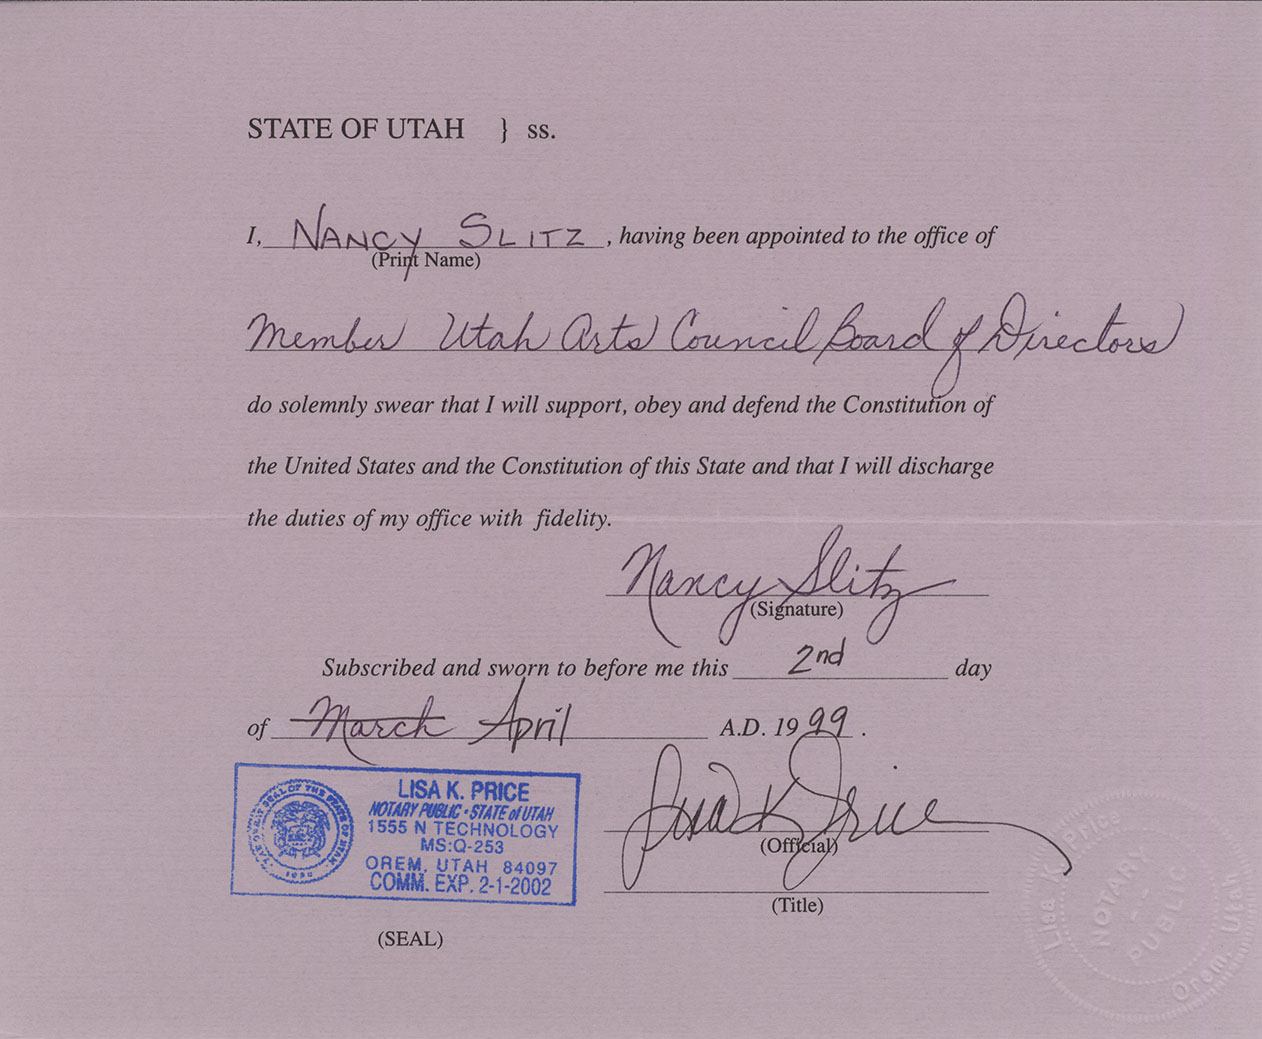 STATE OF UTAH } ss.
I, NANCY SLITZ, having been appointed to the office of
(Print Name)
Member Utah Arts Council Board of Directors
do solemnly swear that I will support, obey and defend the Constitution of
the United States and the Constitution of this State and that I will discharge
the duties of my office with fidelity.
Nancy Slitz
(Signature)
Subscribed and sworn to before me this 2nd day
of March April A.D. 1999.
LISA K. PRICE
NOTARY PUBLIC • STATE of UTAH
1555 N TECHNOLOGY
MS:Q-253
OREM, UTAH 84097
COMM. EXP. 2-1-2002
THE GREAT SEAL OF THE STATE OF UTAH
1896
Lisa K Price
(Official)
(Title)
(SEAL)
Lisa K. Price
NOTARY
PUBLIC
Orem, Utah